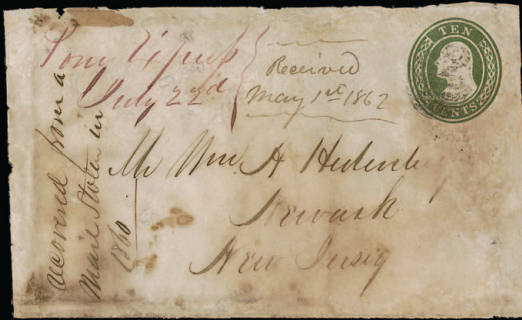 Pony Express
July 22d
Received
May 1st 1862
TEN
CENTS
recovered from a
Mail Stolen in
1860
Mr Wm. A
Newark
New Jersey